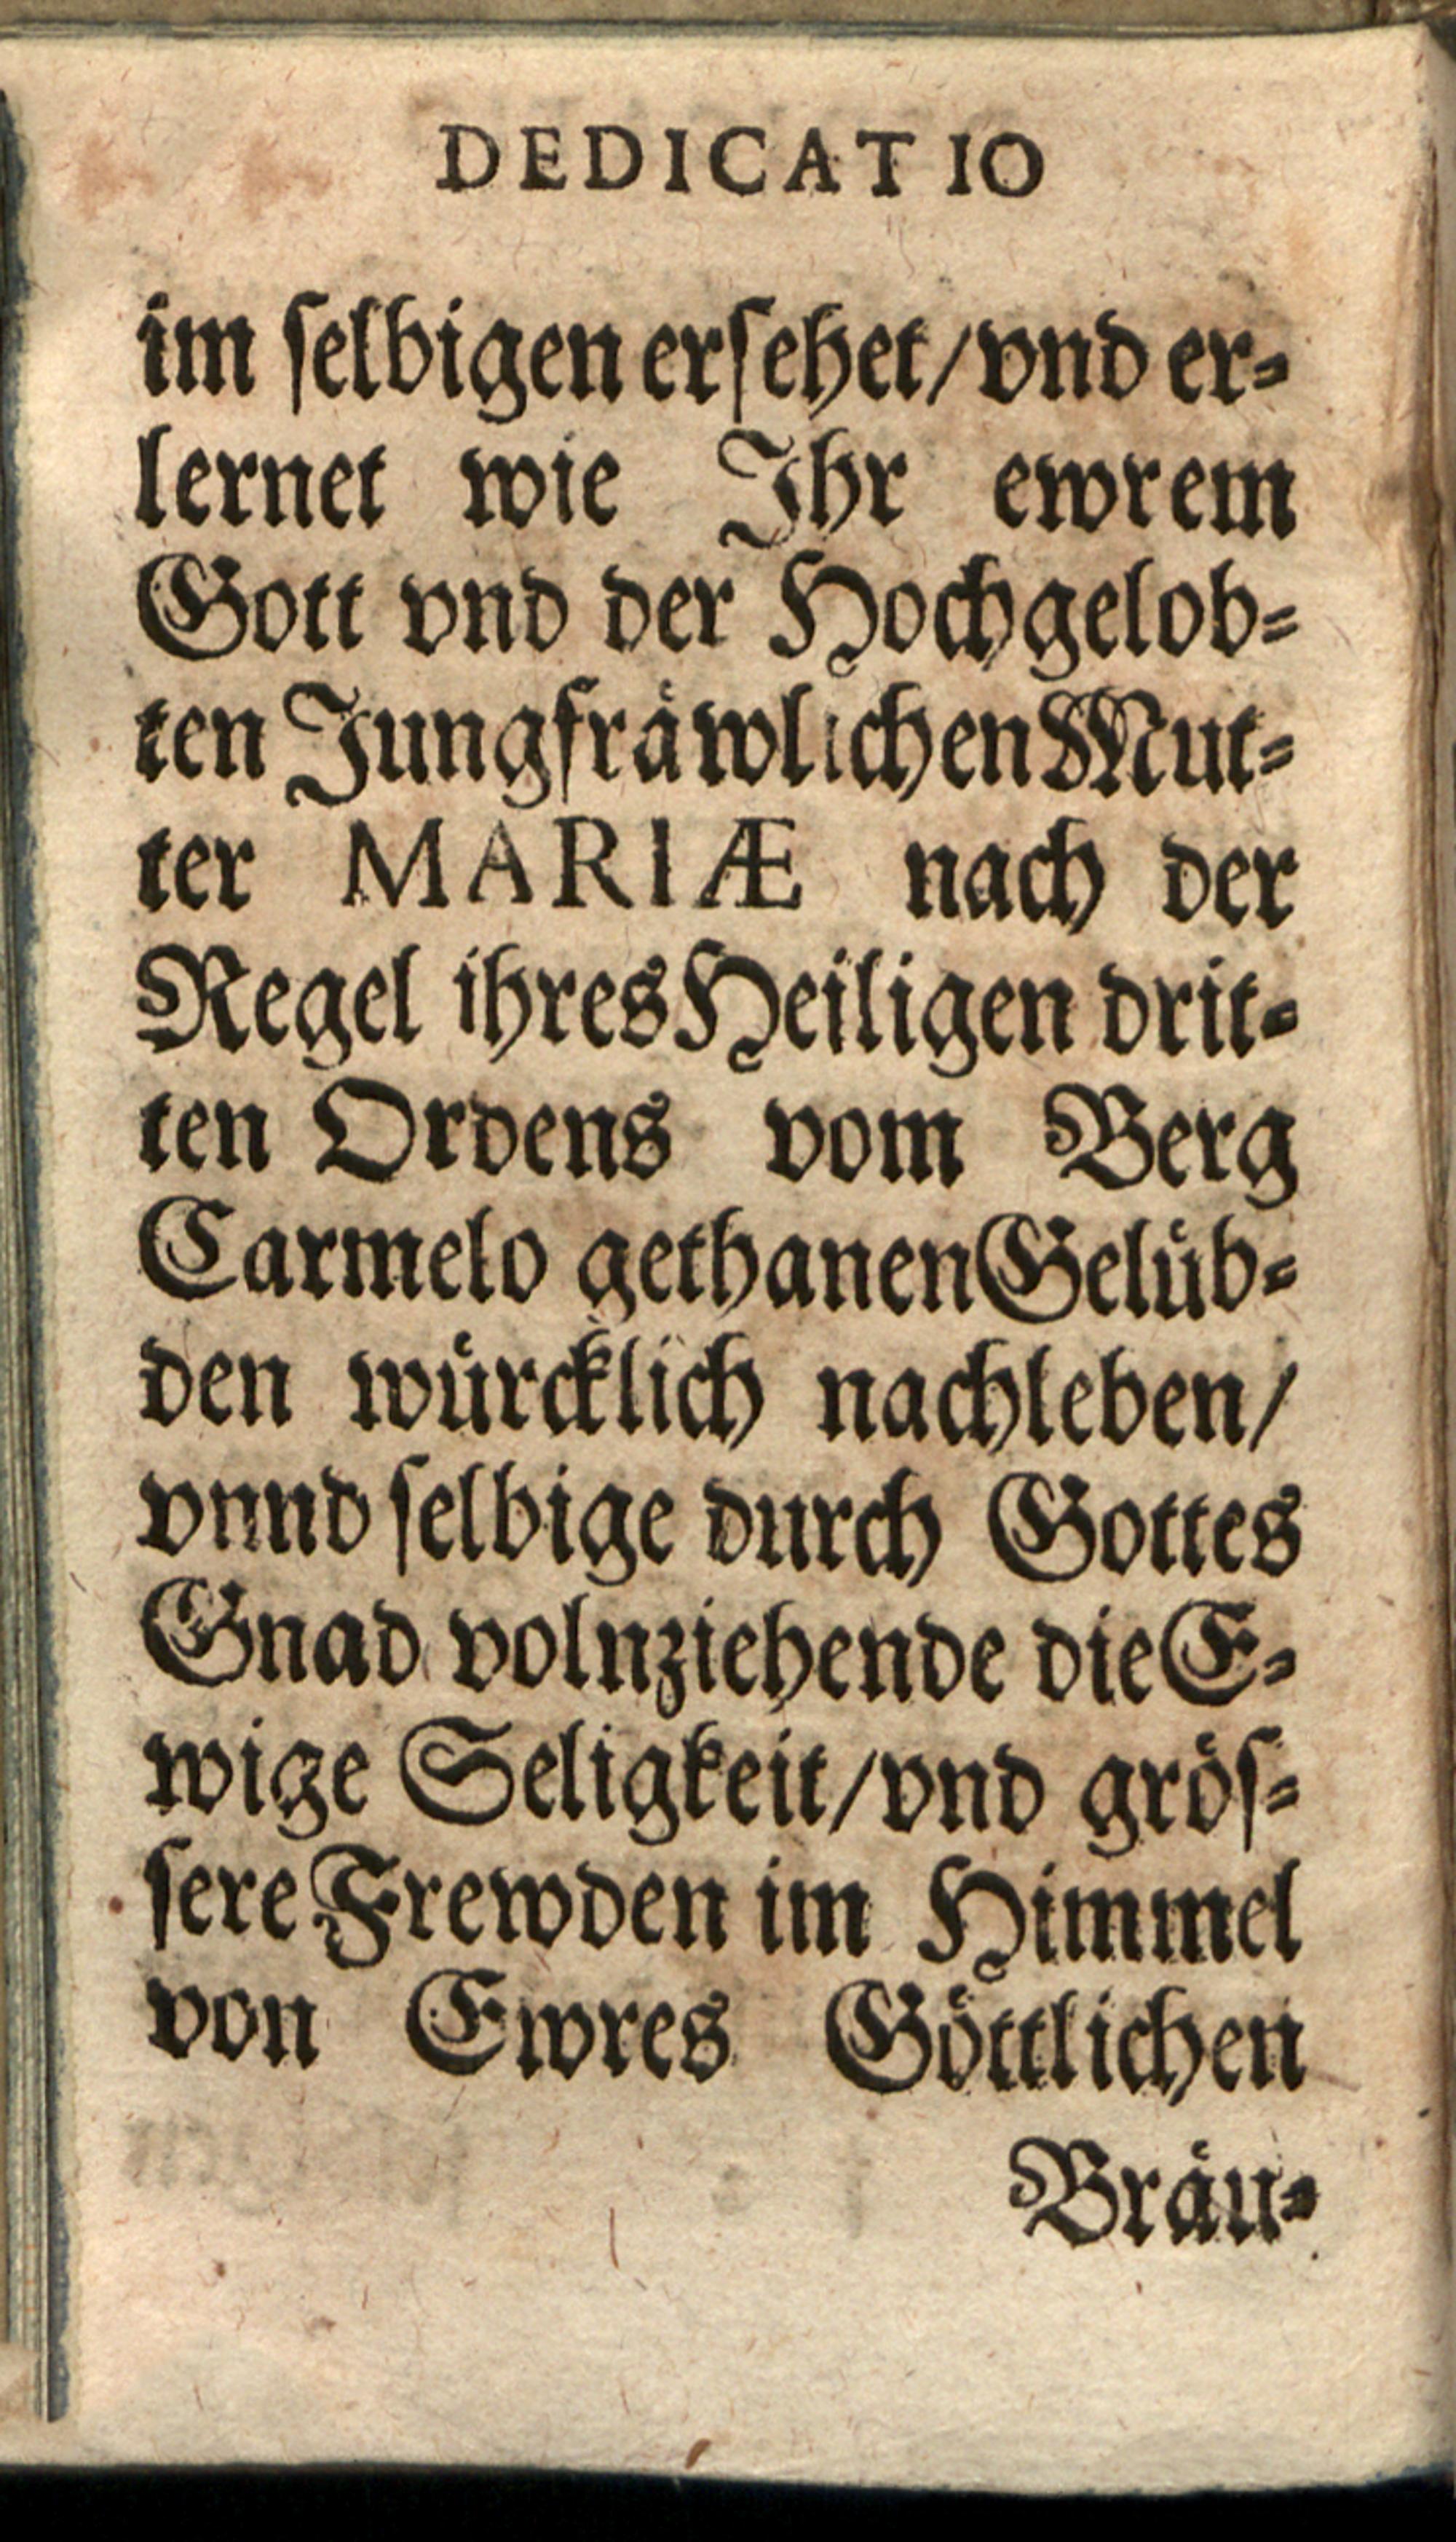 DEDICATIO
im ſelbigen erſehet/ vnd er⸗
lernet wie Ihr ewrem
Gott vnd der Hochgelob⸗
ten Jungfräwlichen Mut⸗
ter MARIÆ nach der
Regel ihres Heiligen drit⸗
ten Ordens vom Berg
Carmelo gethanen Gelüb⸗
den würcklich nachleben/
vnnd ſelbige durch Gottes
Gnad volnziehende die E⸗
wige Seligkeit/ vnd gröſ⸗
ſere Frewden im Himmel
von Ewres Göttlichen
Bräu⸗